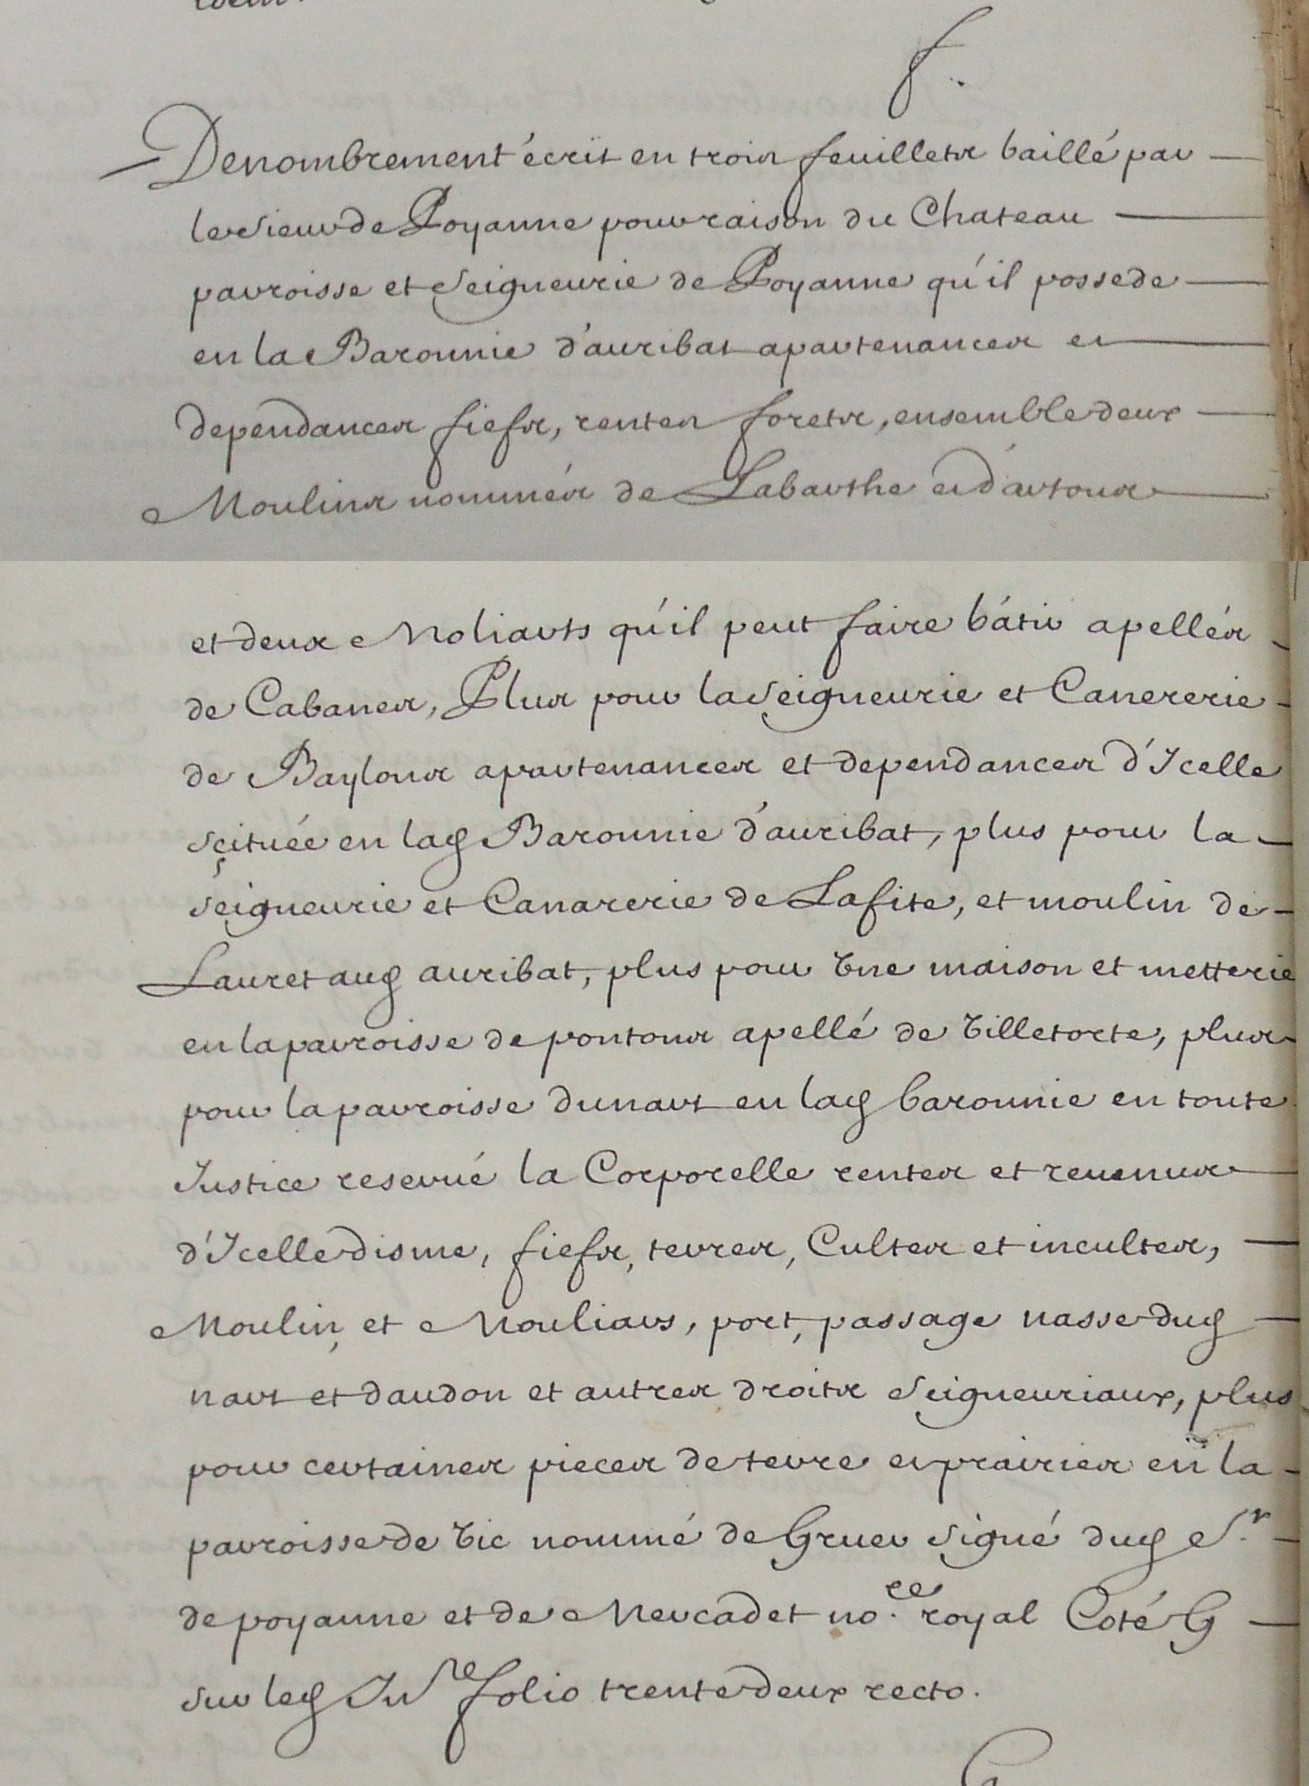 f.
Denombrement écrit en trois feuillets baillé par
le sieur de Poyanne pour raison du Chateau
parroisse et seigneurie de Poyanne qu'il possede
en la Baronnie d'auribat apartenances et
dependances fiefs, rentes forets, ensemble deux
Moulins nommés de Labarthe et d'artous
et deux Moliarts qu'il peut faire bátir apellés
de Cabanes, Plus pour la seigneurie et Canererie
de Baylous apartenances et dependances d'Icelle
scituée en lad Baronnie d'auribat, plus pour la
seigneurie et Canarerie de Lafite, et moulin de
Lauret aud auribat, plus pour vne maison et metterie
en la parroisse de pontous apellé de villetorte, plus
pour la parroisse dunart en lad baronnie en toute
Justice reservé la Corporelle rentes et revenus
d'Icelle disme, fiefs, terres, Cultes et incultes,
Moulin, et Mouliars, port, passage nasse dud
nart et daudon et autres droits seigneuriaux, plus
pour certaines pieces de terre et prairies en la
parroisse de vic nommé de Gruer signé dud Sr.
de poyanne et de Mercadet no.re royal Coté G
sur led Inre folio trente deux recto.